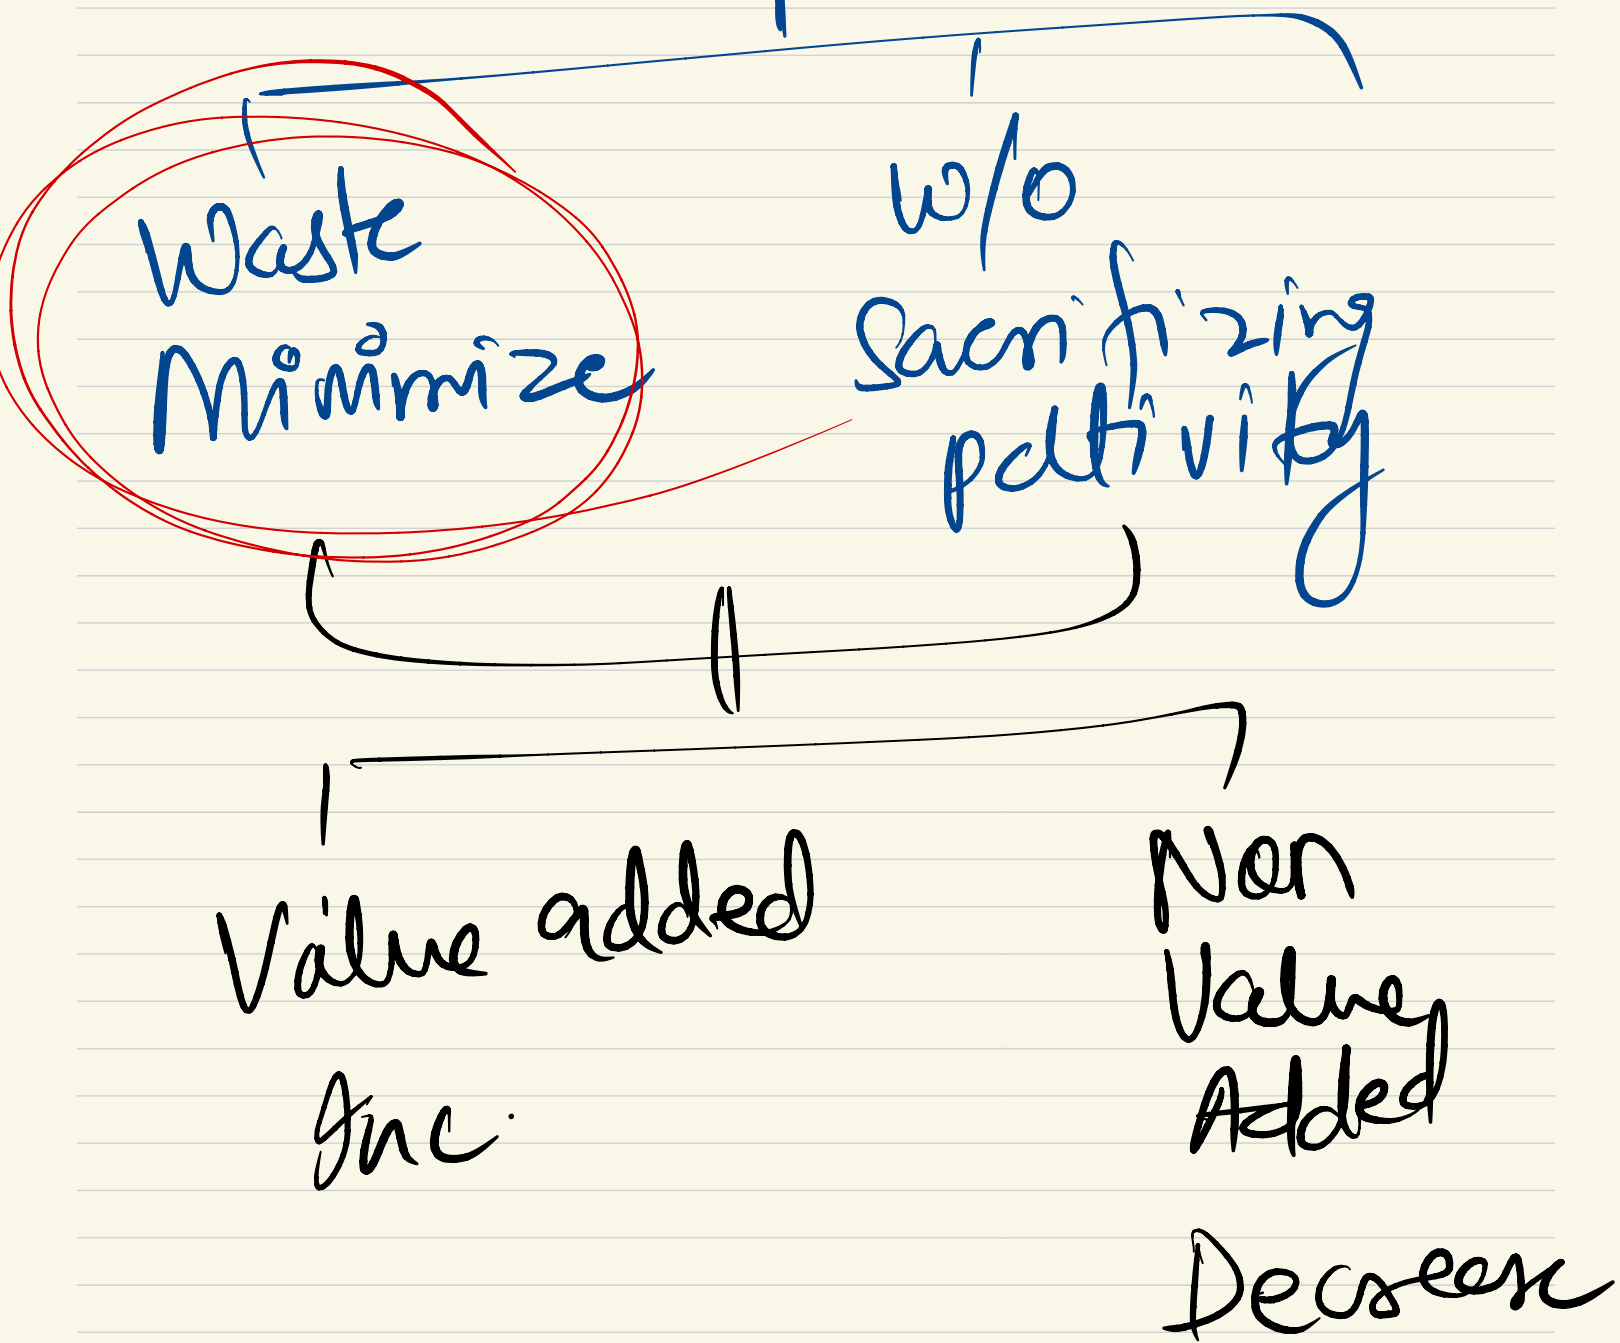 Waste
Minimize
w/o
Sacrifizing
pdtivity
Value added
Inc.
Non
Value
Added
Decrease